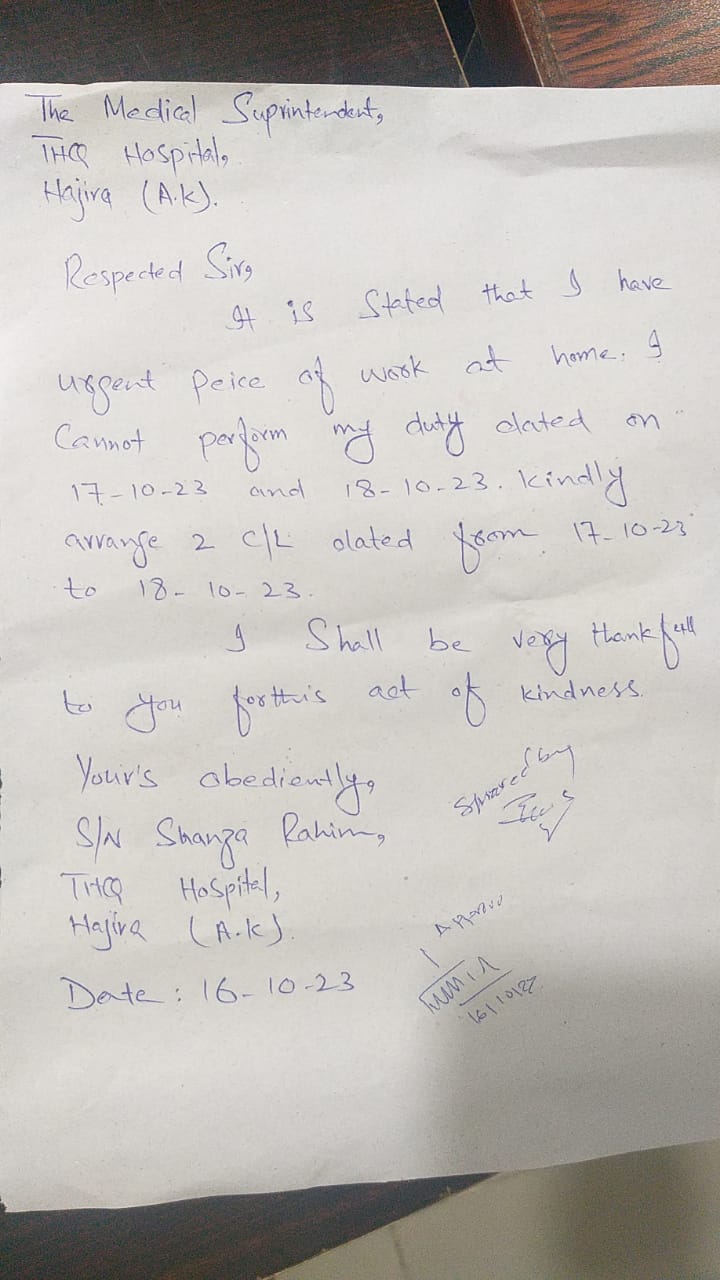 The Medical Suprintendent,
THQ Hospital,
Hajira (A.K).
Respected Sir,
It is Stated that I have
urgent peice of work at home. I
Cannot perform my duty dated on
17-10-23 and 18-10-23. kindly
arrange 2 C/L dated from 17-10-23
to 18-10-23.
I Shall be very thankfull
to you for this act of kindness.
Your's obediently,
S/N Shanza Rahim,
THQ Hospital,
Hajira (A.K).
Date: 16-10-23
Spared by
Approve